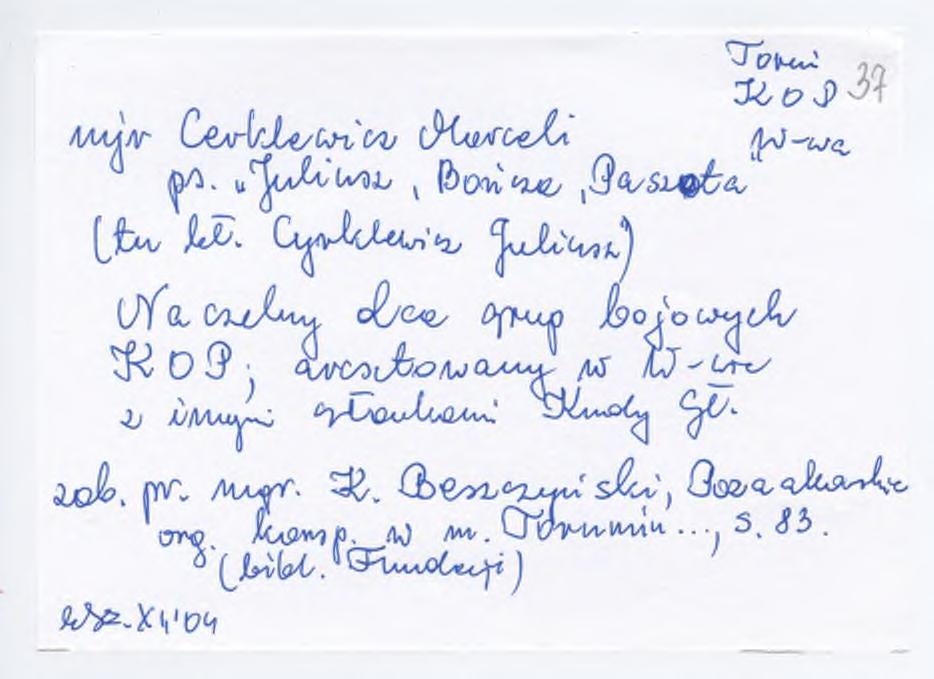 Toruń
KOP 37
W-wa
mjr Cerklewicz Marceli
ps. „Juliusz, Bończa, Paszota"
(tu bł. Cyrklewicz Juliusz)
Naczelny dca grup bojowych
KOP; aresztowany w W-wie
z innymi członkami Kmdy Gł.
zob. pr. mgr. K. Beszczyński, Pozaakowskie
org. konsp. w m. Toruniu..., s. 83.
(bibl. Fundacji)
XI'04